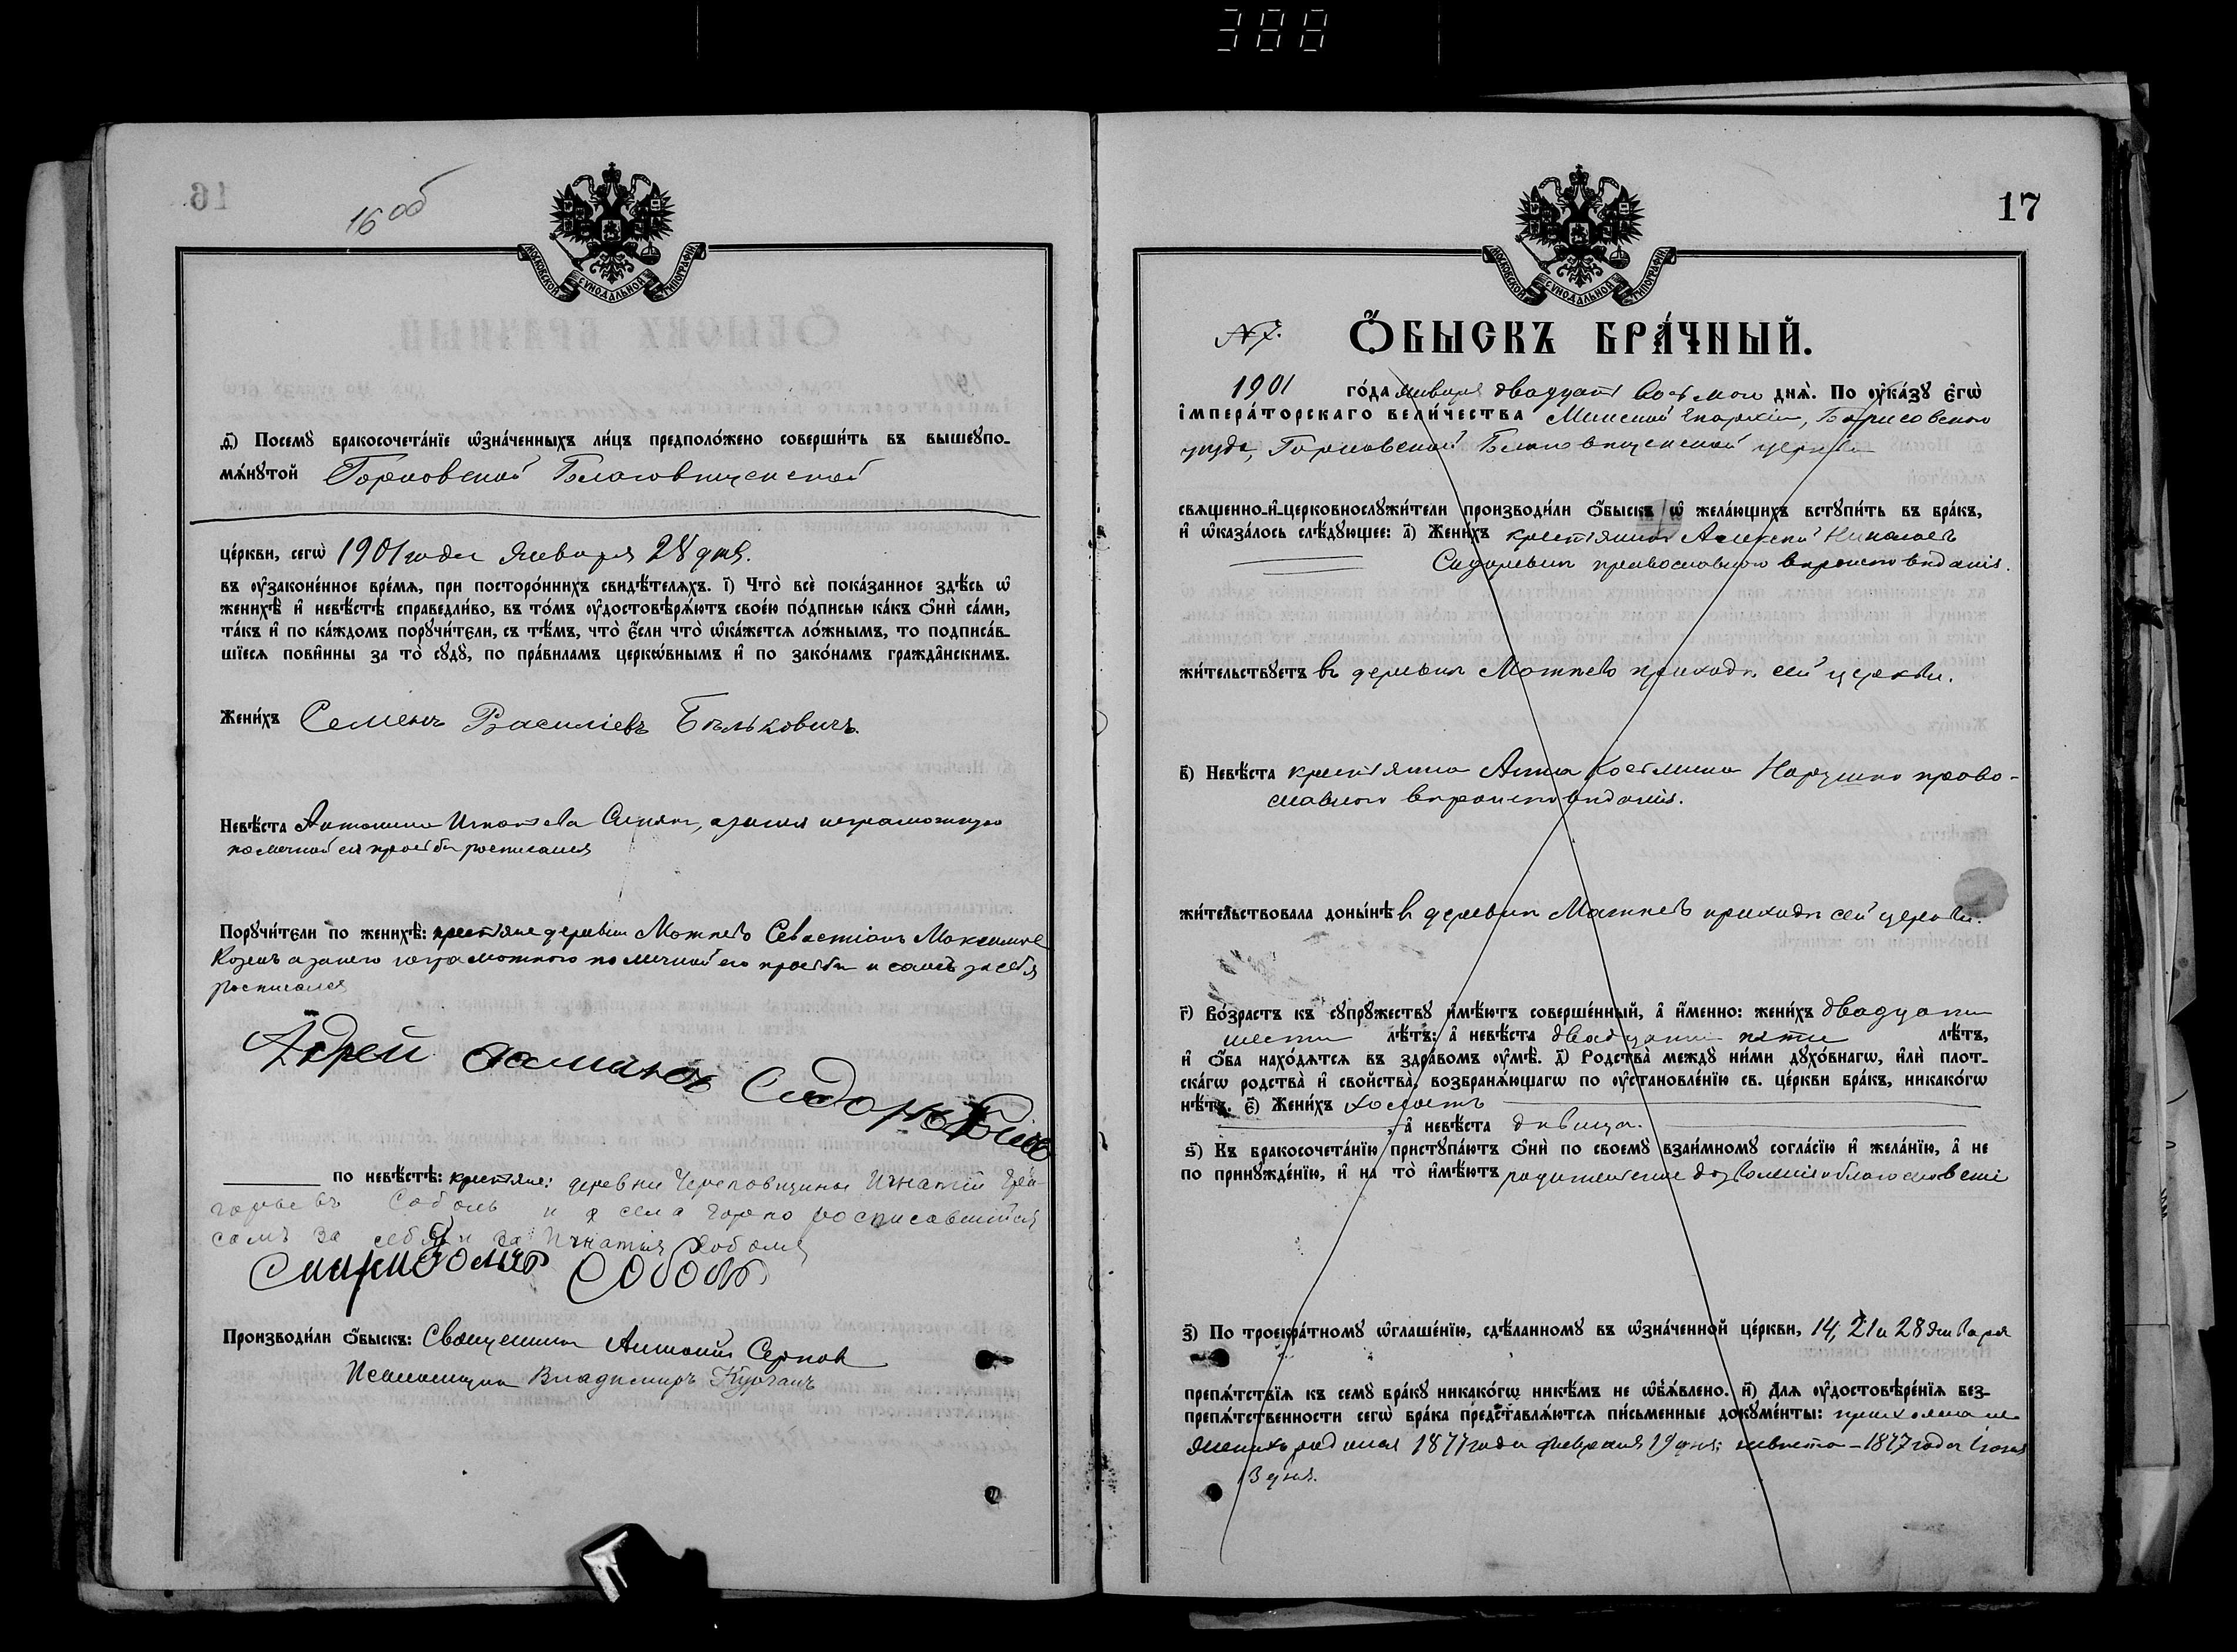 388
16 об
МОСКОВСКОЙ СУНОДАЛЬНОЙ ТИПОГРАФІИ
д҃і) Посемꙋ бракосочета́нїе ѡ҆зна́ченныхъ ли́цъ предполо́жено соверши́ть въ вышеꙋпо-
мѧ́нꙋтой Горковской Благовѣщенской
це́ркви, сегѡ̀ 1901 года Января 28 дня.
въ ᲂу҆законе́нное вре́мѧ, при посторо́ннихъ свидѣ́телѧхъ. і҃) Что̀ всѐ пока́занное здѣ́сь ѡ҆
женихѣ̀ и҆ невѣ́стѣ справедли́во, въ то́мъ ᲂу҆достовѣрѧ́ютъ свое́ю по́дписью ка́къ ѻ҆нѝ са́ми,
та́къ и҆ по ка́ждомъ порꙋчи́тели, съ тѣ́мъ, что̀ є҆́сли что̀ ѡ҆ка́жетсѧ ло́жнымъ, то подписа́в-
шїесѧ пови́нны за то̀ сꙋдꙋ̀, по пра́виламъ церко́внымъ и҆ по зако́намъ гражда́нскимъ.
Жени́хъ Семенъ Василіевъ Бѣльковичъ
Невѣ́ста Антонина Игнатева а за нея неграмотную
по личной ея просьбѣ росписался
Порꙋчи́тели по женихѣ̀: крестьяне деревни Мотнево Севастіанъ Максимовъ
Козелъ а за него неграмотного по личной его просьбѣ и самъ за себя
росписался
Адрей Сидоровичъ
по невѣ́стѣ: крестьяне: деревни Череповщины Игнатій Гри-
горьевъ Соболь и села Горко росписавшійся
самъ за себя и за Игнатія Соболя
Соболь
Производи́ли ѻ҆́быскъ: Священникъ Антоній
Псаломщикъ Владимиръ Курганъ
17
МОСКОВСКОЙ СУНОДАЛЬНОЙ ТИПОГРАФІИ
№ 7. Ѻ҆́БЫСКЪ БРА́ЧНЫЙ.
1901 го́да января двадцать восьмого днѧ̀. По ᲂу҆ка́зꙋ є҆гѡ̀
і҆мпера́торскаго вели́чества Минской Епархіи, Борисовского
уѣзда, Горковской Благовѣщенской церкви
свѧщенно-и҆-церковнослꙋжи́тели производи́ли ѻ҆́быскъ ѡ҆ жела́ющихъ встꙋпи́ть въ бра́къ,
и҆ ѡ҆каза́лось слѣ́дꙋющее: а҃) Жени́хъ крестьянинъ Алексѣй Николаевъ
Сидоревичъ православного вѣроисповѣданія.
жи́тельствꙋетъ въ деревнѣ Мотнево прихода сей церкви.
в҃) Невѣ́ста крестьянка Анна Косьмина Нарушко право-
славного вѣроисповѣданія.
жи́тельствовала доны́нѣ въ деревнѣ Мотнево прихода сей церкви.
г҃) Во́зрастъ къ сꙋпрꙋ́жествꙋ и҆мѣ́ютъ соверше́нный, а҆ и҆́менно: жени́хъ двадцати
шести лѣ́тъ: а҆ невѣ́ста двадцати пяти лѣ́тъ,
и҆ ѻ҆́ба нахо́дѧтсѧ въ здра́вомъ ᲂу҆мѣ̀. д҃) Родства̀ междꙋ̀ ни́ми дꙋхо́внагѡ, и҆лѝ плот-
ска́гѡ родства̀ и҆ сво́йства, возбранѧ́ющагѡ по ᲂу҆становле́нїю св. це́ркви бра́къ, никако́гѡ
нѣ́тъ. є҃) Жени́хъ холостъ
, а҆ невѣ́ста дѣвица.
ѕ҃) Къ бракосочета́нїю пристꙋпа́ютъ ѻ҆нѝ по своемꙋ̀ взаи́мномꙋ согла́сїю и҆ жела́нїю, а҆ не
по принꙋжде́нїю, и҆ на то̀ и҆мѣ́ютъ родительское дозволеніе и благословеніе
з҃) По троекра́тномꙋ ѡ҆глаше́нїю, сдѣ́ланномꙋ въ ѡ҆зна́ченной це́ркви, 14, 21 и 28 января
препѧ́тствїѧ къ семꙋ̀ бра́кꙋ никако́гѡ никѣ́мъ не ѡ҆б̾ѧ́влено. и҃) Длѧ ᲂу҆достовѣре́нїѧ без-
препѧ́тственности сегѡ̀ бра́ка представлѧ́ютсѧ пи́сьменные докꙋме́нты:
женихъ родился 1877 года февраля 19 дня; невѣста - 1877 года
13 дня.